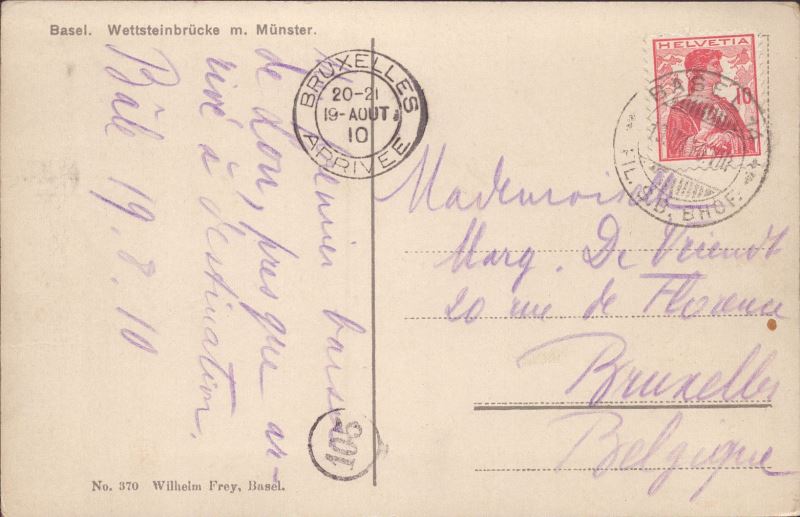 Basel. Wettsteinbrücke m. Münster.
BRUXELLES
20-21
19-AOUT
10
ARRIVEE
HELVETIA
10
BASEL
FIL. S.B. BHOF.
dernier baiser
de Lou, presque ar-
rivé à destination.
Bâle 19.8.10
Mademoiselle
Marg. De Vriendt
20 rue de Florence
Bruxelles
Belgique
105
No. 370 Wilhelm Frey, Basel.